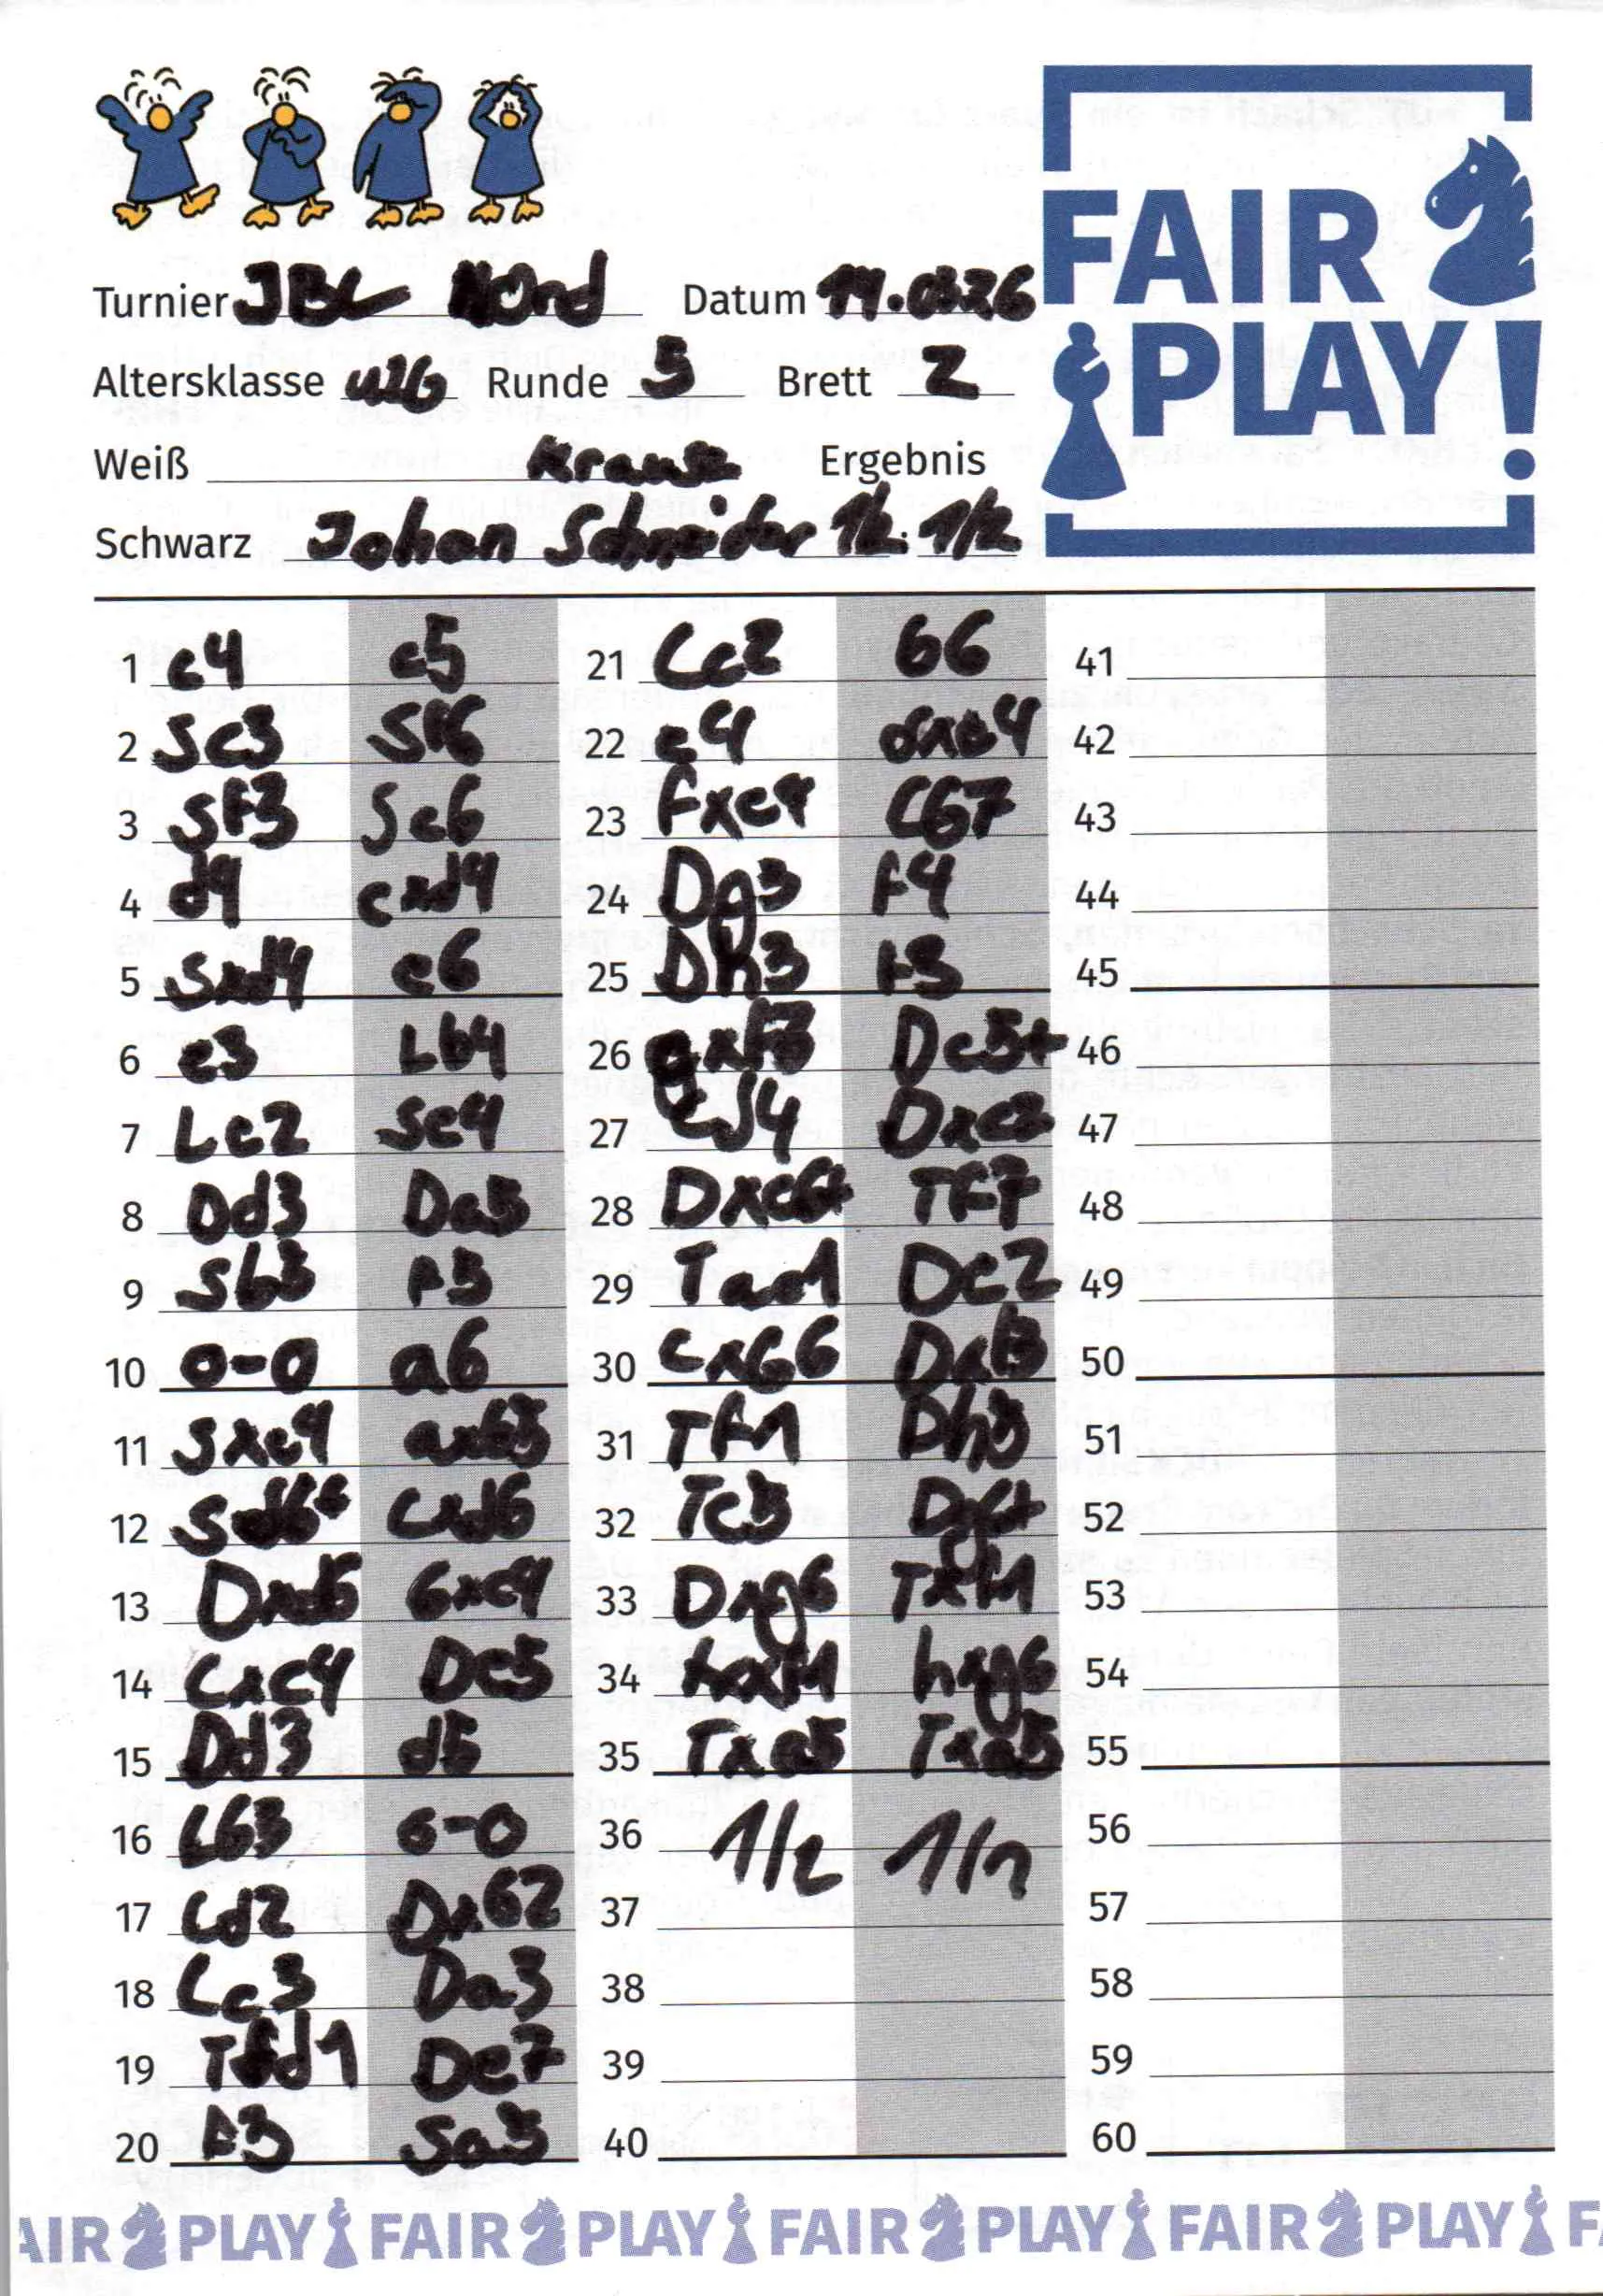 FAIR
PLAY!
Turnier JBL Nord Datum
Altersklasse u16 Runde 3 Brett 2
Weiß Krause Ergebnis
Schwarz Johan Schneider 1/2 : 1/2
1 c4 c5 21 Lc2 b6 41
2 Sc3 Sf6 22 e4 dxe4 42
3 Sf3 Sc6 23 fxe4 Lb7 43
4 d4 cxd4 24 Dg3 f4 44
5 Sxd4 e6 25 Dh3 f3 45
6 e3 Lb4 26 gxf3 Dc5+ 46
7 Le2 Se4 27 Ld4 47
8 Dd3 Da5 28 Dxe6+ Tf7 48
9 Sb3 f5 29 Dc2 49
10 0-0 a6 30 cxb6 50
11 Sxe4 31 Tf1 Dh3 51
12 Sd6+ Lxd6 32 Tc5 Dg4+ 52
13 Dxd6 fxe4 33 Dxg6 Txf1 53
14 Lxc4 De5 34 hxg6 54
15 Dd3 d5 35 Txa5 55
16 Lb3 0-0 36 1/2 1/2 56
17 Ld2 Dxb2 37 57
18 Lc3 Da3 38 58
19 Tfd1 De7 39 59
20 f3 Sa5 40 60
AIR PLAY FAIR PLAY FAIR PLAY FAIR PLAY F